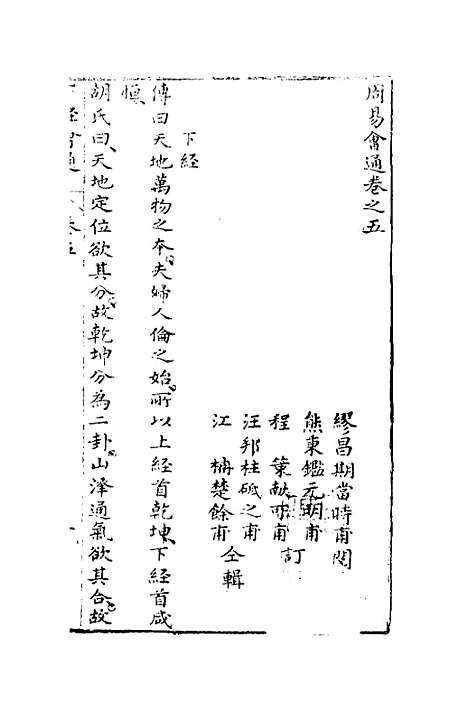 周易會通卷之五
繆昌期當時甫閱
熊東鑑元明甫
訂
程 策献甫
汪邦柱砥之甫
仝輯
江 柟楚餘甫
下经
傳曰天地萬物之本夫婦人倫之始所以上经首乾坤下经首咸
恒
胡氏曰天地定位欲其分故乾坤分為二卦山澤通氣欲其合故
下经會通 卷五 一